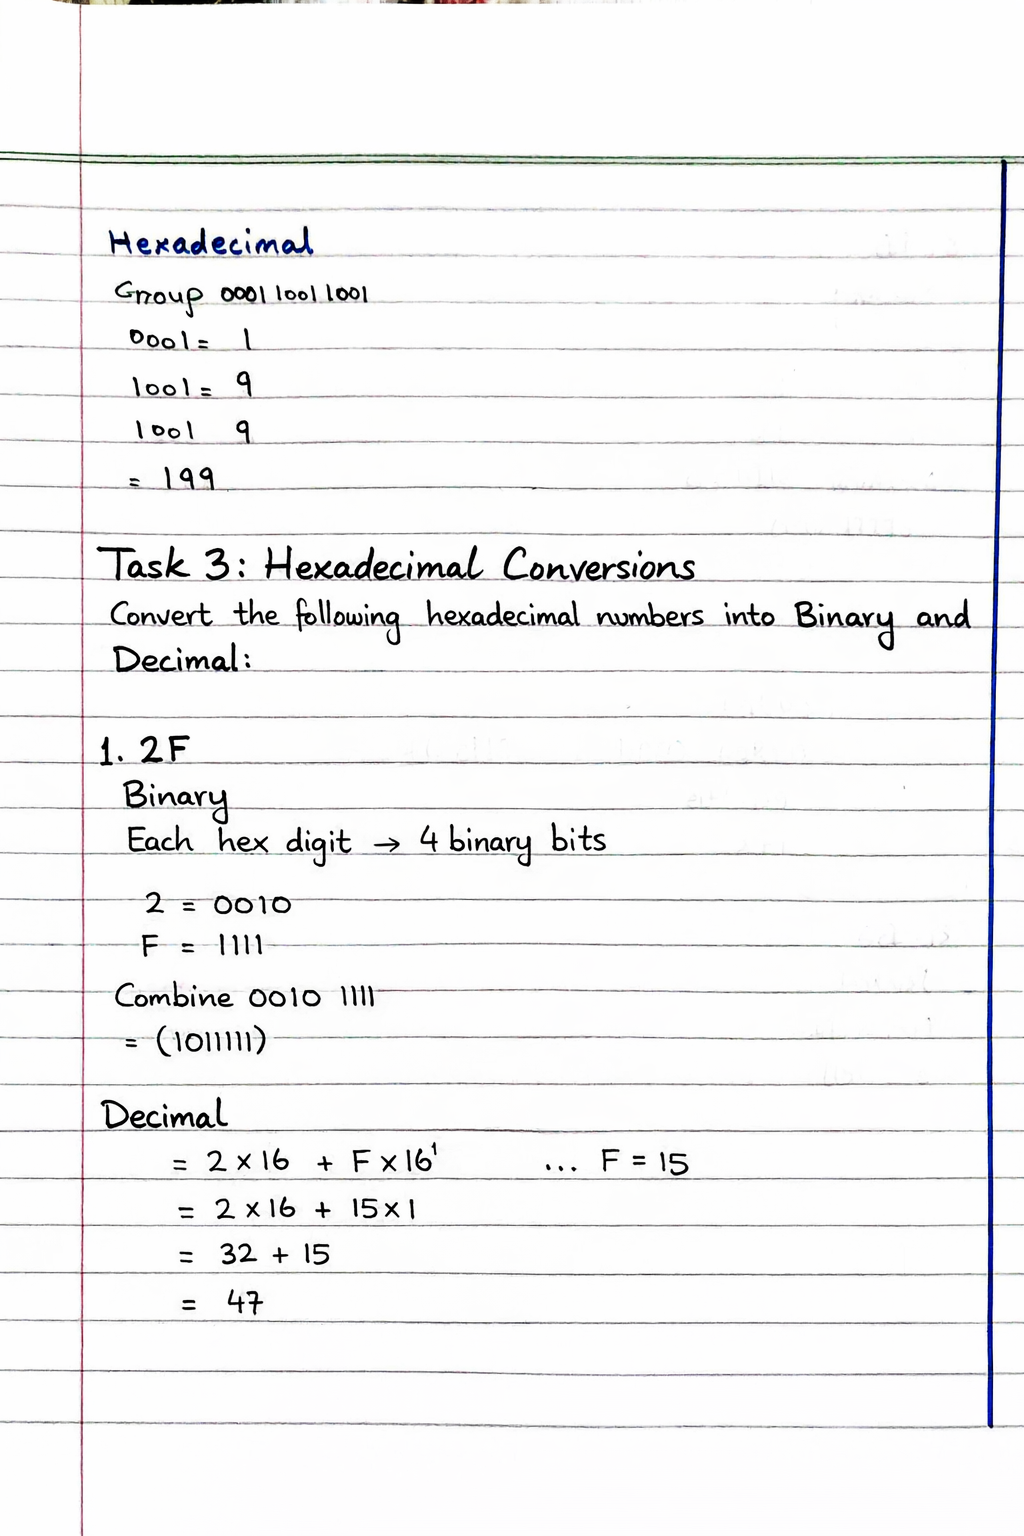 Hexadecimal
Group 0001 1001 1001
0001 = 1
1001 = 9
1001 9
= 199
Task 3: Hexadecimal Conversions
Convert the following hexadecimal numbers into Binary and
Decimal:
1. 2F
Binary
Each hex digit → 4 binary bits
2 = 0010
F = 1111
Combine 0010 1111
= (1011111)
Decimal
= 2 × 16 + F × 16¹ ... F = 15
= 2 × 16 + 15 × 1
= 32 + 15
= 47